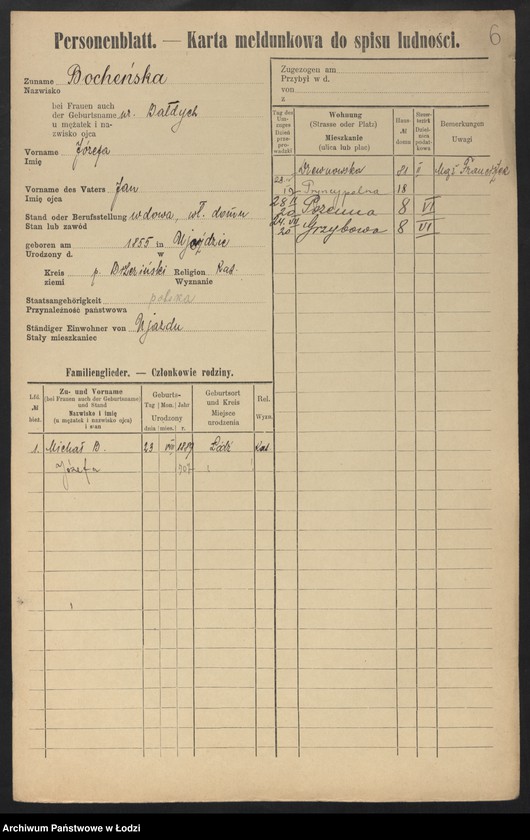 6
Personenblatt. — Karta meldunkowa do spisu ludności.
Zuname Bocheńska
Nazwisko
bei Frauen auch
der Geburtsname ur. Bałdych
u mężatek i na-
zwisko ojca
Vorname Józefa
Imię
Vorname des Vaters Jan
Imię ojca
Stand oder Berufsstellung wdowa, wł. domu
Stan lub zawód
geboren am 1855 in Ujeździe
Urodzony d. w
Kreis p. Brzeziński Religion Kat.
ziemi Wyznanie
Staatsangehörigkeit polska
Przynależność państwowa
Ständiger Einwohner von Ujazdu
Stały mieszkaniec
Zugezogen am
Przybył w d.
von
z
Tag des Um-zuges Dzień prze-pro-wadzki
Wohnung (Strasse oder Platz) Mieszkanie (ulica lub plac)
Haus № domu
Bemerkungen Uwagi
Drewnowska 21 II Mąż Franciszek
Pryncypalna 18
28 20 8 VI
24 VII 20 Grzybowa 8 VI
Familienglieder. — Członkowie rodziny.
Lfd. № bież.
Zu- und Vorname (bei Frauen auch der Geburtsname) und Stand Nazwisko i imię (u mężatek i nazwisko ojca) i stan
Geburts- Tag Mon. Jahr Urodzony dnia mies. r.
Geburtsort und Kreis Miejsce urodzenia
Rel. Wyzn.
1. Michał B. 23 VIII 1889 Łódź Kat
Józefa 907
Archiwum Państwowe w Łodzi